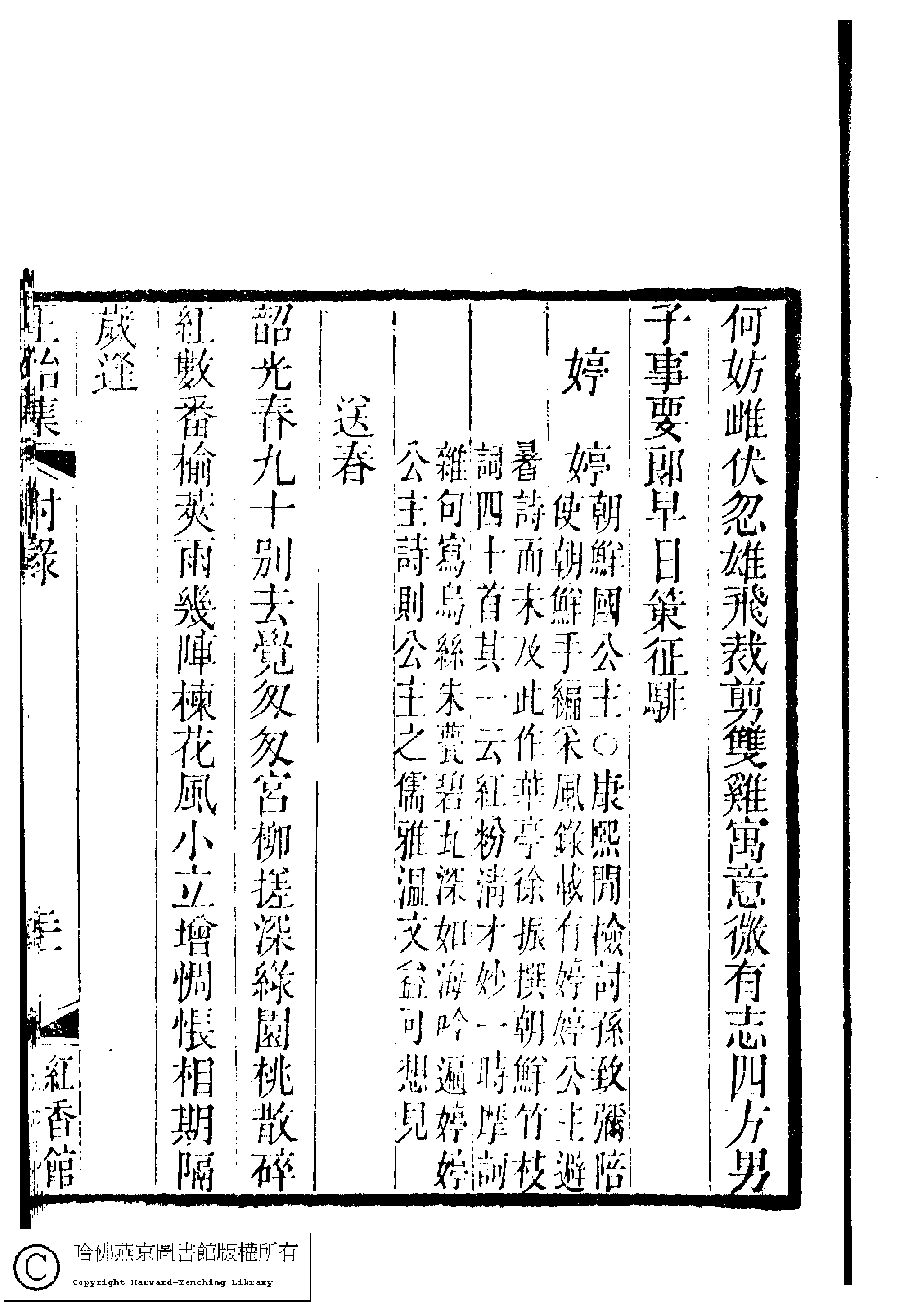 何妨雌伏忽雄飛裁剪雙雞寓意微有志四方男
子事要郎早日策征騑
婷婷
朝鮮國公主○康熙間檢討孫致彌陪
使朝鮮手編采風錄載有婷婷公主避
暑詩而未及此作華亭徐振撰朝鮮竹枝
詞四十首其一云紅粉淸才妙一時摩訶
雜句寫烏絲朱甍碧瓦深如海吟遍婷婷
公主詩則公主之儒雅溫文益可想見
送春
韶光春九十別去覺匆匆宮柳搓深綠園桃散碎
紅數番榆莢雨幾陣楝花風小立增惆悵相期隔
歲逢
正始集
附錄
紅香館
哈佛燕京圖書館版權所有
Copyright Harvard-Yenching Library